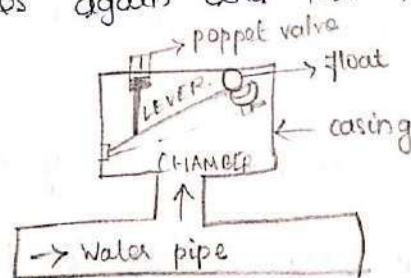 again and
poppet valve
float
LEVER.
casing
CHAMBER
Water pipe